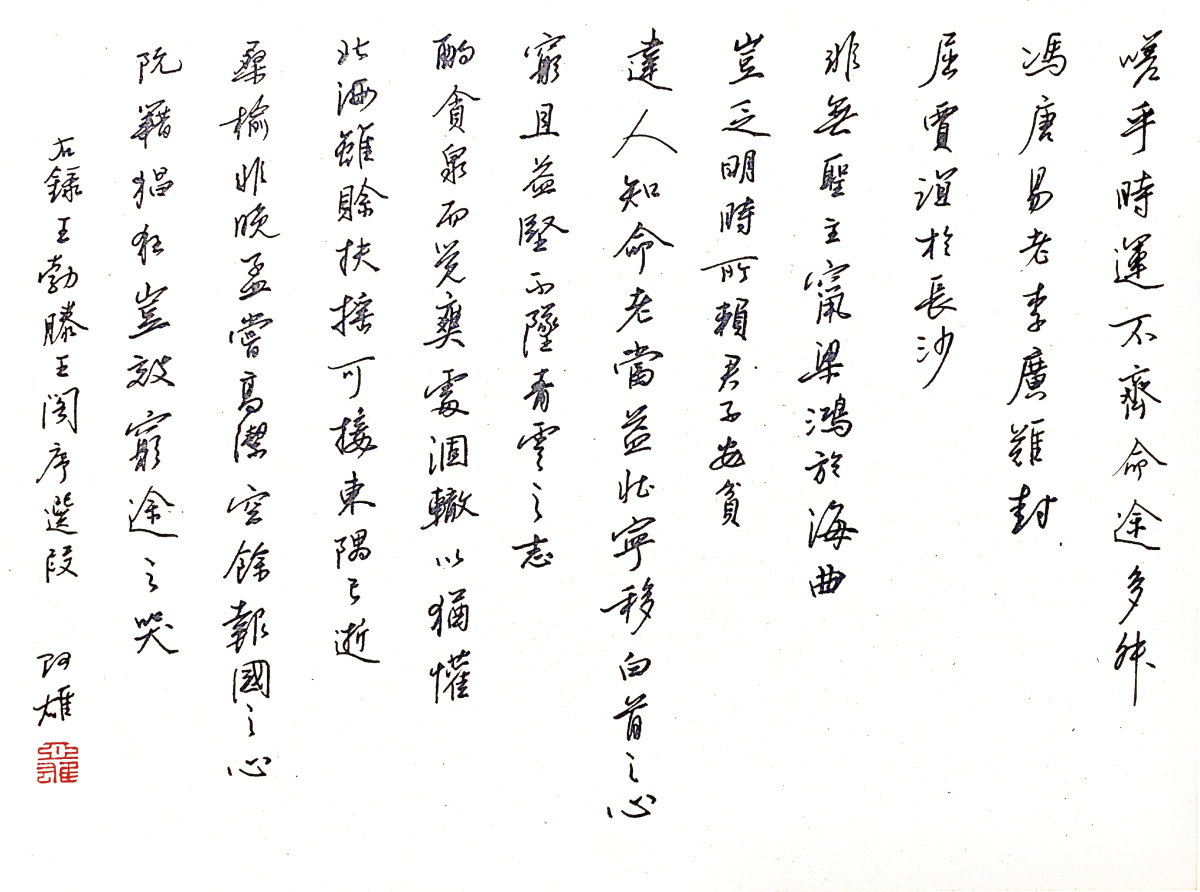 嗟乎時運不齊命途多舛
馮唐易老李廣難封
屈賈誼於長沙
非無聖主竄梁鴻於海曲
豈乏明時所賴君子安貧
達人知命老當益壯寧移白首之心
窮且益堅不墜青雲之志
酌貪泉而觉爽處涸轍以猶懽
北海雖賒扶搖可接東隅已逝
桑榆非晚孟嘗高潔空餘報國之心
阮籍猖狂豈效窮途之哭
右錄王勃滕王閣序選段 阿雄